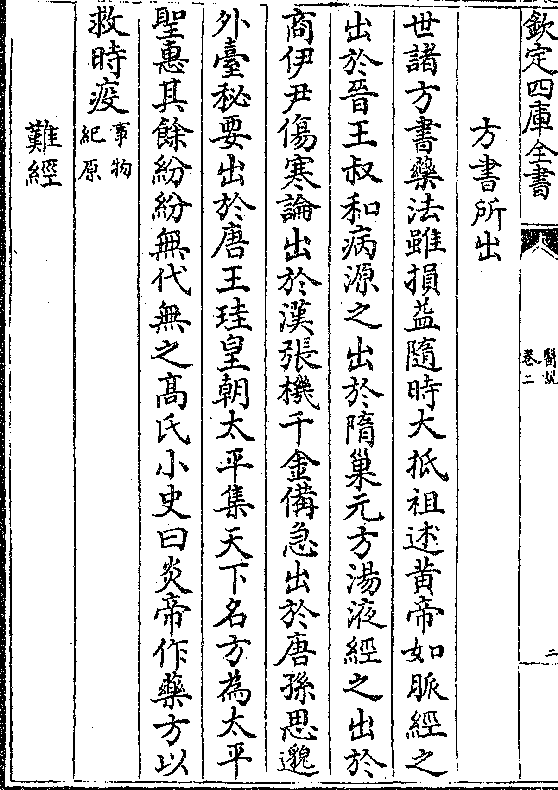 欽定四庫全書
醫說
卷二
二
方書所出
世諸方書藥法雖損益隨時大抵祖述黄帝如脈經之
出於晉王叔和病源之出於隋巢元方湯液經之出於
商伊尹傷寒論出於漢張機千金備急出於唐孫思邈
外臺秘要出於唐王珪皇朝太平集天下名方為太平
聖惠其餘紛紛無代無之髙氏小史曰炎帝作藥方以
救時疫事物
紀原
難經